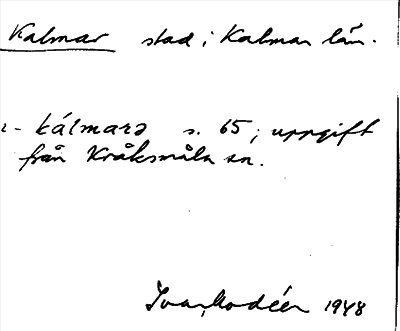 Kalmar stad i Kalmar län.
z - kálmarə s. 65, uppgift
från Kråksmåla sn.
Ivar Modéer 1948